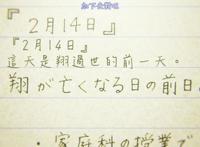 加下衣對呱
『2月14日』
『2月14日』
這天是翔過世的前一天。
翔が亡くなる日の前日
・家庭科の授業で